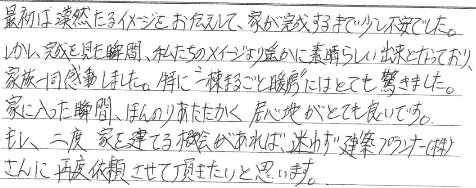 最初は漠然たるイメージをお伝えして、家が完成するまで少し不安でした。
しかし、完成を見た瞬間、私たちのイメージより遥かに素晴らしい出来となっており、
家族一同感動しました。特に"一棟まるごと暖房"にはとても驚きました。
家に入った瞬間、ほんのりあたたかく居心地がとても良いです。
もし、二度家を建てる機会があれば、迷わず建築プランナー(株)
さんに再度依頼させて頂きたいと思います。